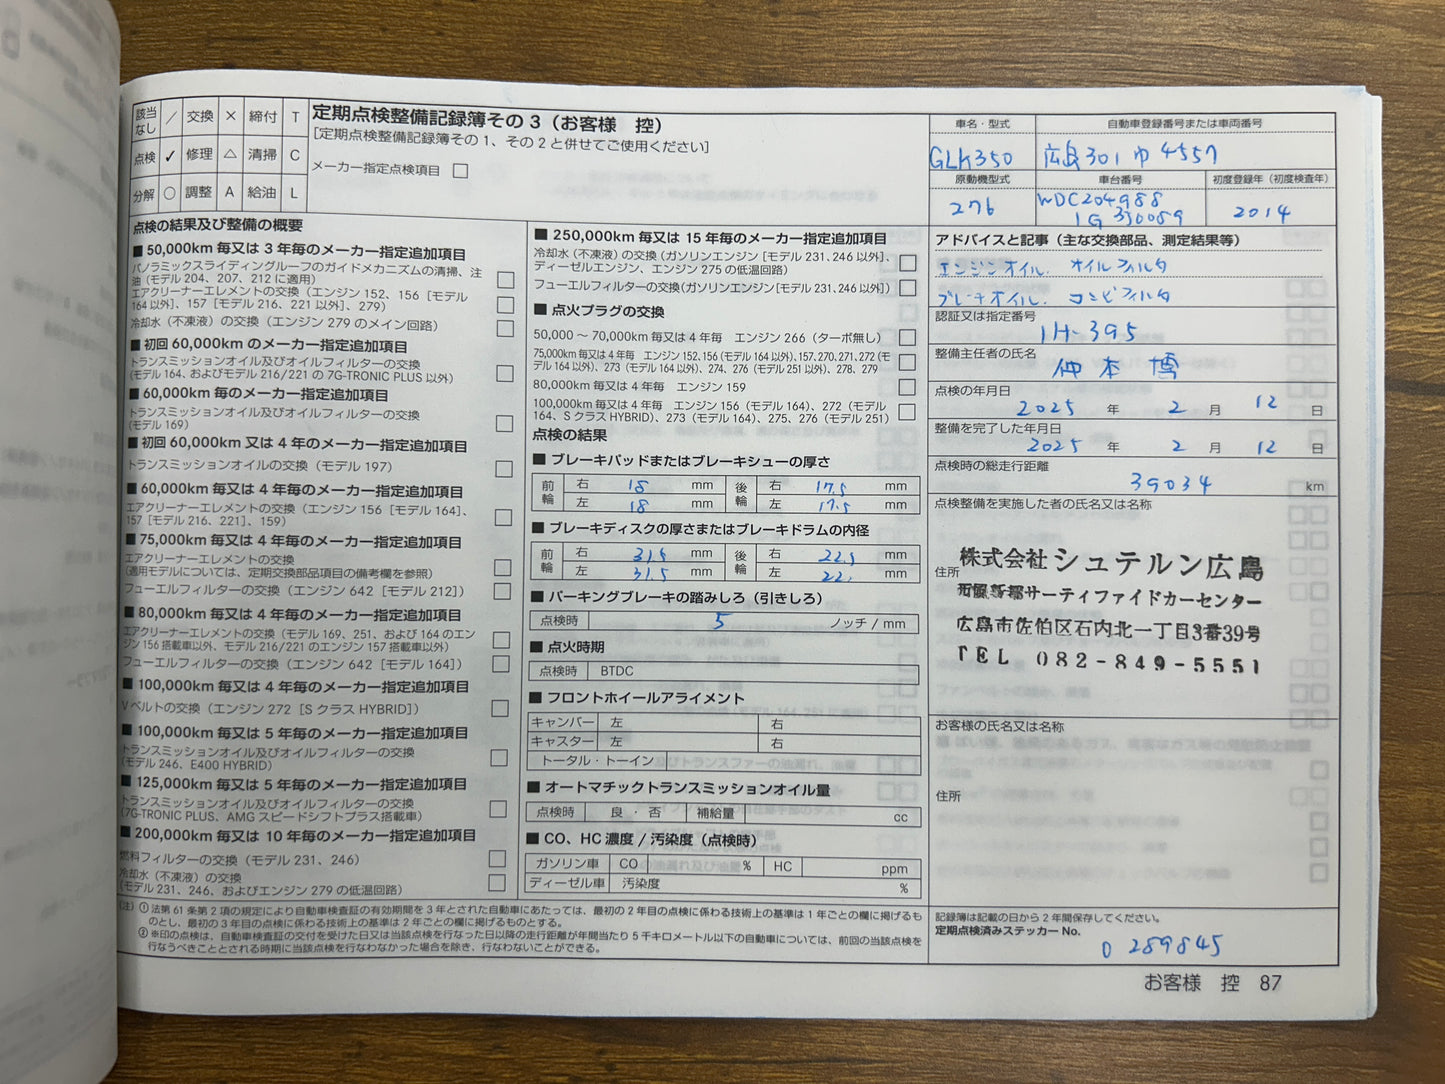 該当なし ／ 交換 × 締付 T
点検 ✓ 修理 △ 清掃 C
分解 ○ 調整 A 給油 L
定期点検整備記録簿その３（お客様　控）
［定期点検整備記録簿その１、その２と併せてご使用ください］
メーカー指定点検項目 □
点検の結果及び整備の概要
■ 50,000km 毎又は 3 年毎のメーカー指定追加項目
パノラミックスライディングルーフのガイドメカニズムの清掃、注
油（モデル 204、207、212 に適用） □
エアクリーナーエレメントの交換（エンジン 152、156［モデル
164 以外］、157［モデル 216、221 以外］、279） □
冷却水（不凍液）の交換（エンジン 279 のメイン回路） □
■ 初回 60,000km のメーカー指定追加項目
トランスミッションオイル及びオイルフィルターの交換
（モデル 164、およびモデル 216/221 の 7G-TRONIC PLUS 以外） □
■ 60,000km 毎のメーカー指定追加項目
トランスミッションオイル及びオイルフィルターの交換
（モデル 169） □
■ 初回 60,000km 又は 4 年毎のメーカー指定追加項目
トランスミッションオイルの交換（モデル 197） □
■ 60,000km 毎又は 4 年毎のメーカー指定追加項目
エアクリーナーエレメントの交換（エンジン 156［モデル 164］、
157［モデル 216、221］、159） □
■ 75,000km 毎又は 4 年毎のメーカー指定追加項目
エアクリーナーエレメントの交換
（適用モデルについては、定期交換部品項目の備考欄を参照） □
フューエルフィルターの交換（エンジン 642［モデル 212］） □
■ 80,000km 毎又は 4 年毎のメーカー指定追加項目
エアクリーナーエレメントの交換（モデル 169、251、および 164 のエン
ジン 156 搭載車以外、モデル 216/221 のエンジン 157 搭載車以外） □
フューエルフィルターの交換（エンジン 642［モデル 164］） □
■ 100,000km 毎又は 4 年毎のメーカー指定追加項目
V ベルトの交換（エンジン 272［S クラス HYBRID］） □
■ 100,000km 毎又は 5 年毎のメーカー指定追加項目
トランスミッションオイル及びオイルフィルターの交換
（モデル 246、E400 HYBRID） □
■ 125,000km 毎又は 5 年毎のメーカー指定追加項目
トランスミッションオイル及びオイルフィルターの交換
（7G-TRONIC PLUS、AMG スピードシフトプラス搭載車） □
■ 200,000km 毎又は 10 年毎のメーカー指定追加項目
燃料フィルターの交換（モデル 231、246） □
冷却水（不凍液）の交換
（モデル 231、246、およびエンジン 279 の低温回路） □
■ 250,000km 毎又は 15 年毎のメーカー指定追加項目
冷却水（不凍液）の交換（ガソリンエンジン［モデル 231、246 以外］、
ディーゼルエンジン、エンジン 275 の低温回路） □
フューエルフィルターの交換（ガソリンエンジン［モデル 231、246 以外］） □
■ 点火プラグの交換
50,000 ～ 70,000km 毎又は 4 年毎　エンジン 266（ターボ無し） □
75,000km 毎又は 4 年毎　エンジン 152、156（モデル 164 以外）、157、270、271、272（モ
デル 164 以外）、273（モデル 164 以外）、274、276（モデル 251 以外）、278、279 □
80,000km 毎又は 4 年毎　エンジン 159 □
100,000km 毎又は 4 年毎　エンジン 156（モデル 164）、272（モデル
164、S クラス HYBRID）、273（モデル 164）、275、276（モデル 251） □
点検の結果
■ ブレーキパッドまたはブレーキシューの厚さ
前輪 右 18 mm 後輪 右 17.5 mm
左 18 mm 左 17.5 mm
■ ブレーキディスクの厚さまたはブレーキドラムの内径
前輪 右 31.5 mm 後輪 右 22.5 mm
左 31.5 mm 左 22. mm
■ パーキングブレーキの踏みしろ（引きしろ）
点検時 5 ノッチ / mm
■ 点火時期
点検時 BTDC
■ フロントホイールアライメント
キャンバー 左 右
キャスター 左 右
トータル・トーイン
■ オートマチックトランスミッションオイル量
点検時 良 ・ 否 補給量 cc
■ CO、HC 濃度 / 汚染度（点検時）
ガソリン車 CO % HC ppm
ディーゼル車 汚染度 %
（注）① 法第 61 条第 2 項の規定により自動車検査証の有効期間を 3 年とされた自動車にあたっては、最初の 2 年目の点検に係わる技術上の基準は 1 年ごとの欄に掲げるも
のとし、最初の 3 年目の点検に係わる技術上の基準は 2 年ごとの欄に掲げるものとする。
② ※印の点検は、自動車検査証の交付を受けた日又は当該点検を行なった日以降の走行距離が年間当たり 5 千キロメートル以下の自動車については、前回の当該点検を
行なうべきこととされる時期に当該点検を行なわなかった場合を除き、行なわないことができる。
車名・型式 自動車登録番号または車両番号
GLK350 広島 301 ゆ 4557
原動機型式 車台番号 初度登録年（初度検査年）
276 WDC204988
1G350059 2014
アドバイスと記事（主な交換部品、測定結果等）
エンジンオイル. オイルフィルタ
ブレーキオイル. コンビフィルタ
認証又は指定番号
1H-395
整備主任者の氏名
仲本 博
点検の年月日
2025 年 2 月 12 日
整備を完了した年月日
2025 年 2 月 12 日
点検時の総走行距離
39034 km
点検整備を実施した者の氏名又は名称
株式会社シュテルン広島
住所
サーティファイドカーセンター
広島市佐伯区石内北一丁目3番39号
TEL 082-849-5551
お客様の氏名又は名称
住所
記録簿は記載の日から 2 年間保存してください。
定期点検済みステッカー No.
0 289845
お客様　控　87